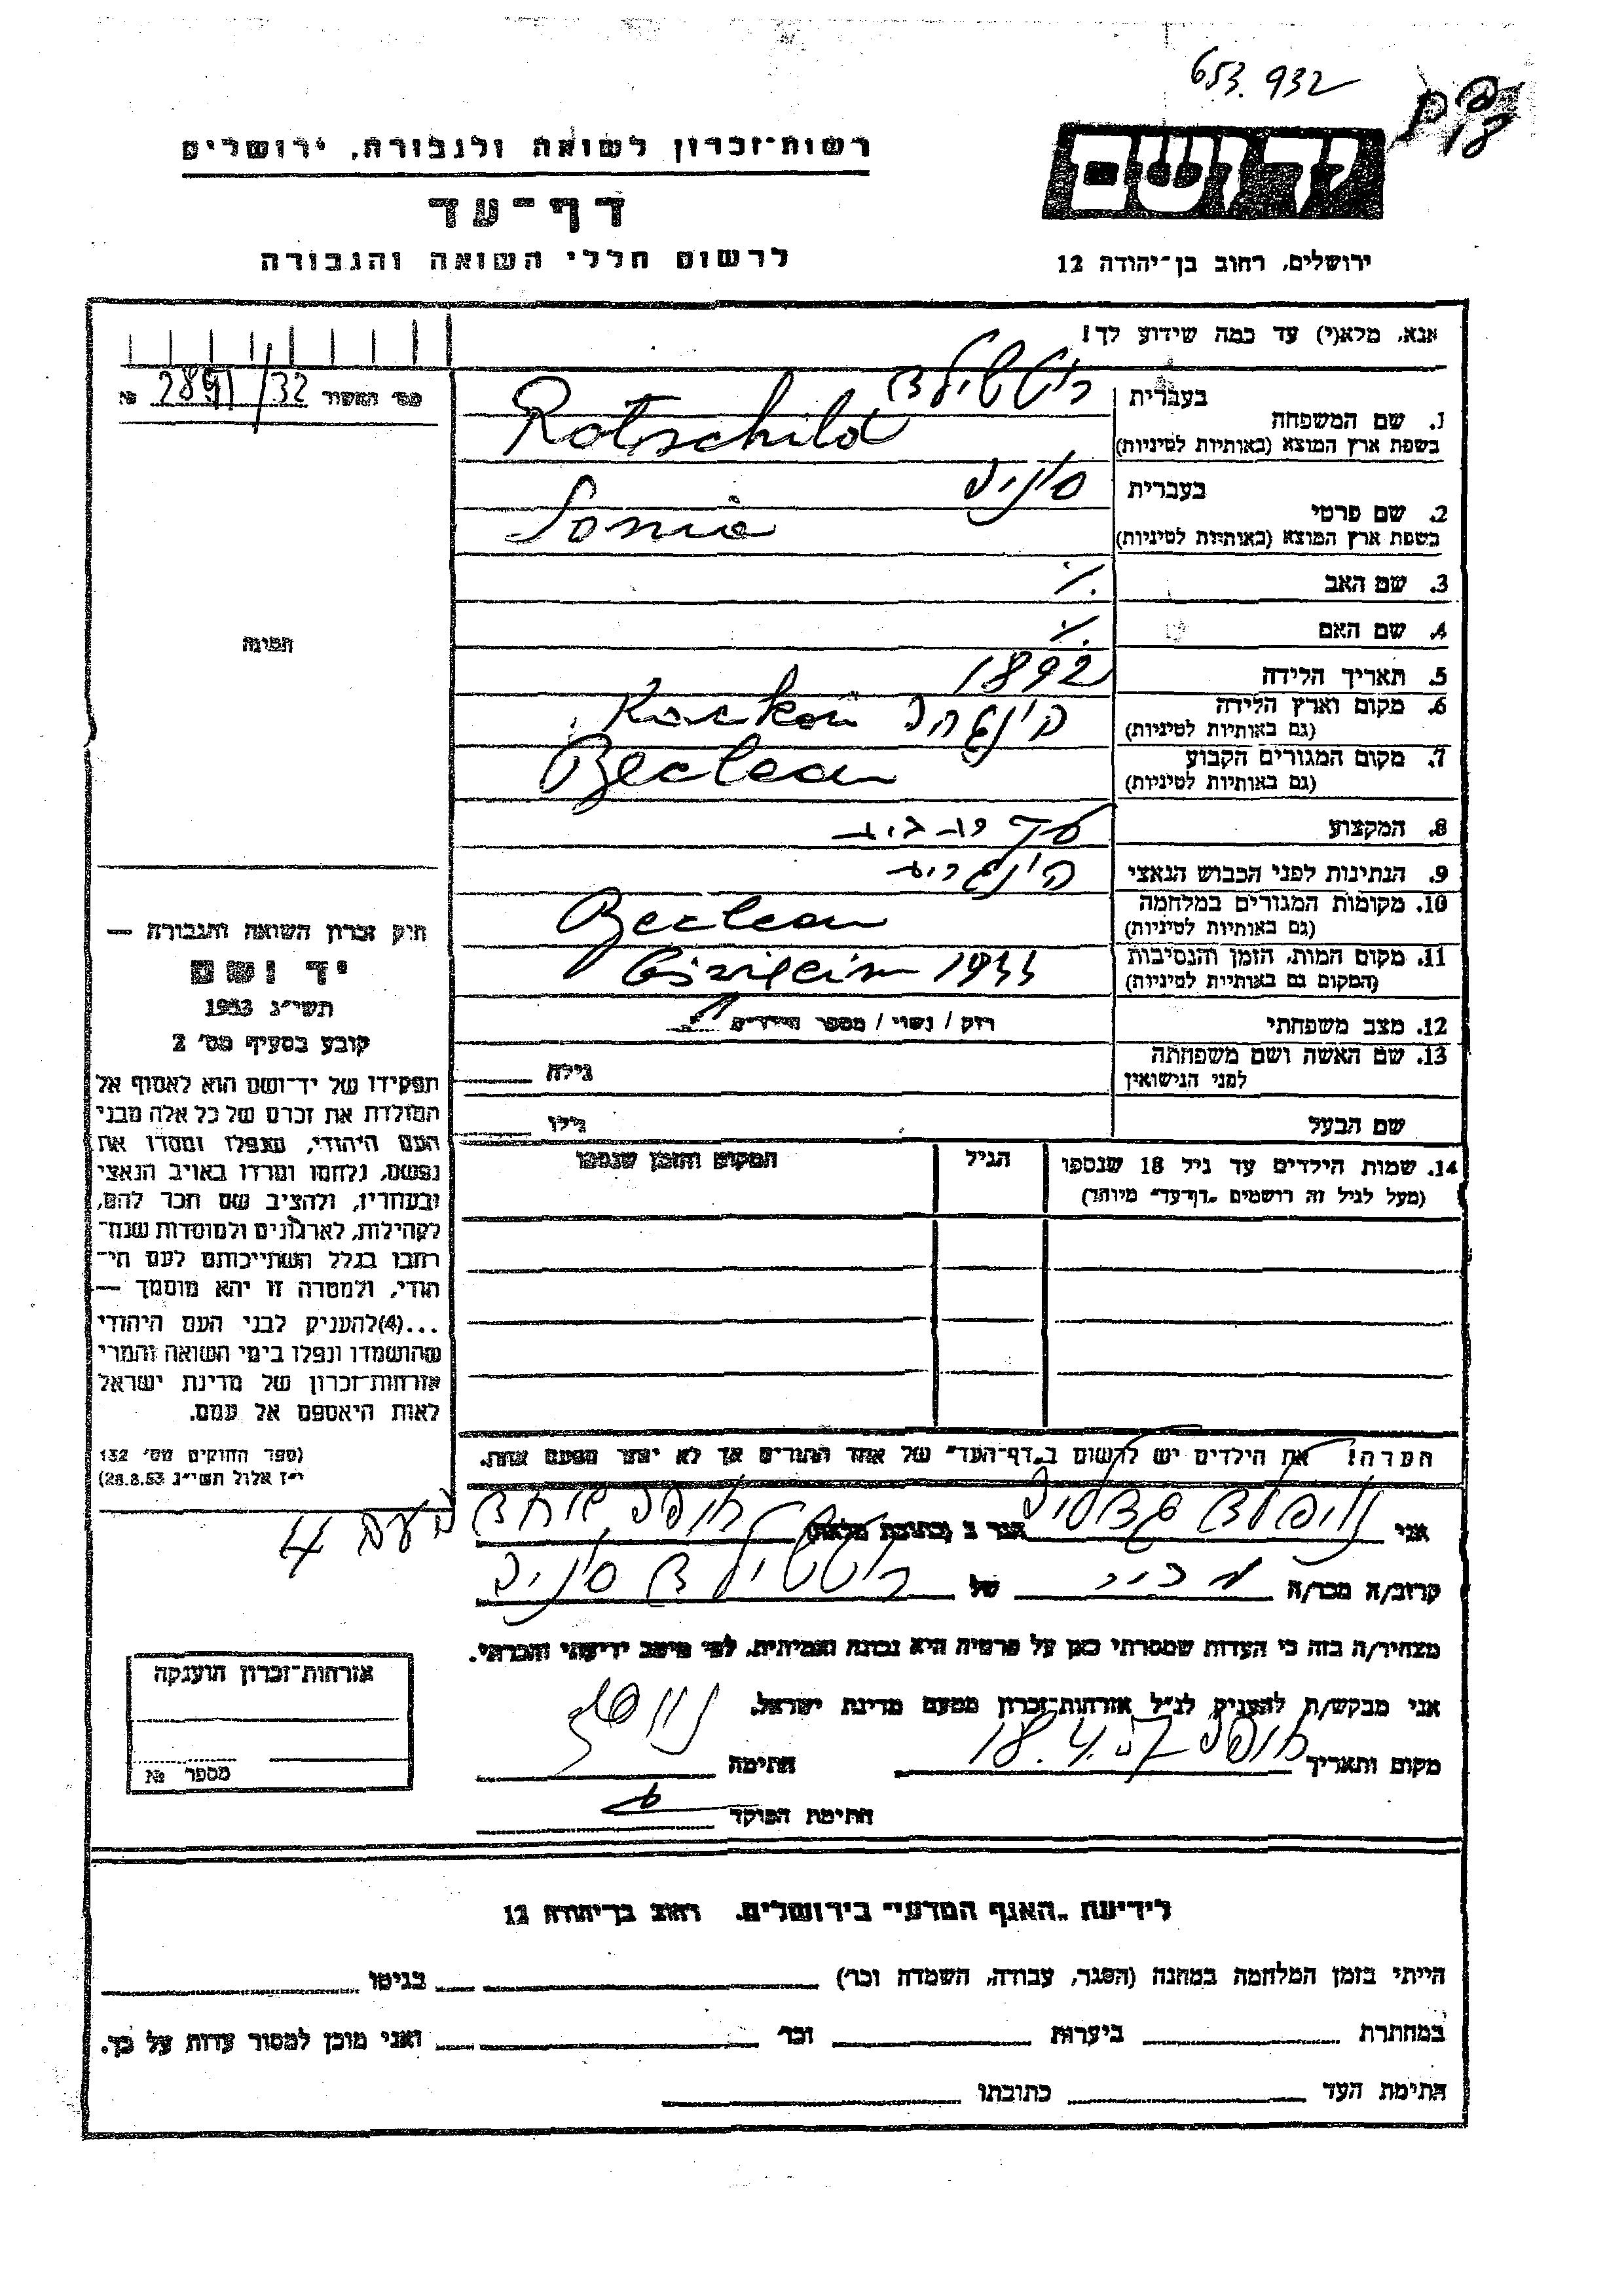 653.932
רשות־זכרון לשואה ולגבורה, ירושלים
דף־עד
לרשום חללי השואה והגבורה
יד ושם
ירושלים, רחוב בן־יהודה 12
אנא, מלא(י) עד כמה שידוע לך!
מס׳ האשור 2891/32 №
1. שם המשפחה
בעברית רוטשילד
בשפת ארץ המוצא (באותיות לטיניות) Rotschild
2. שם פרטי
בעברית סוניה
בשפת ארץ המוצא (באותיות לטיניות) Sonia
3. שם האב
4. שם האם
5. תאריך הלידה 1892
6. מקום וארץ הלידה
(גם באותיות לטיניות)
7. מקום המגורים הקבוע
(גם באותיות לטיניות) Beclean
8. המקצוע
9. הנתינות לפני הכבוש הנאצי
10. מקומות המגורים במלחמה
(גם באותיות לטיניות) Beclean
11. מקום המות, הזמן והנסיבות
(המקום גם באותיות לטיניות)
12. מצב משפחתי רוק / נשוי / מספר הילדים
13. שם האשה ושם משפחתה
לפני הנישואין
גילה
שם הבעל גילו
14. שמות הילדים עד גיל 18 שנספו
(מעל לגיל זה רושמים „דף־עד״ מיוחד)
הגיל
המקום והזמן שנספו
הערה! את הילדים יש לרשום ב„דף־העד״ של אחד ההורים אך לא יותר מפעם אחת.
תמונה
חוק זכרון השואה והגבורה —
יד ושם
תשי״ג 1953
קובע בסעיף מס׳ 2
תפקידו של יד־ושם הוא לאסוף אל
המולדת את זכרם של כל אלה מבני
העם היהודי, שנפלו ומסרו את
נפשם, נלחמו ומרדו באויב הנאצי
ובעוזריו, ולהציב שם וזכר להם,
לקהילות, לארגונים ולמוסדות שנח־
רבו בגלל השתייכותם לעם הי־
הודי, ולמטרה זו יהא מוסמך —
...(4)להעניק לבני העם היהודי
שהושמדו ונפלו בימי השואה והמרי
אזרחות־זכרון של מדינת ישראל
לאות היאספם אל עמם.
(ספר החוקים מס׳ 132
י״ז אלול תשי״ג 28.8.53)
אני הגר ב (כתובת מלאה) חיפה 4
קרוב/ה מכר/ה של רוטשילד סוניה
מצהיר/ה בזה כי העדות שמסרתי כאן על פרטיה היא נכונה ואמיתית, לפי מיטב ידיעתי והכרתי.
אני מבקש/ת להעניק לנ״ל אזרחות־זכרון מטעם מדינת ישראל.
מקום ותאריך חיפה 18.4.57 חתימה
חתימת הפוקד
אזרחות־זכרון הוענקה
מספר №
לידיעת „האגף המדעי״ בירושלים, רחוב בן־יהודה 12
הייתי בזמן המלחמה במחנה (הסגר, עבודה, השמדה וכר׳) בגיטו
במחתרת ביערות וכר׳ ואני מוכן למסור עדות על כך.
חתימת העד כתובתו